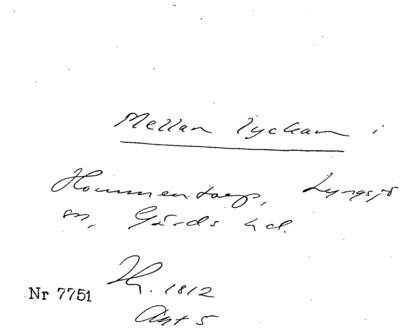 Mellan lyckan i
Hommentorp, Lyngsjö
sn, Gärds hd.
Nr 7751
Th. 1812
Akt 5